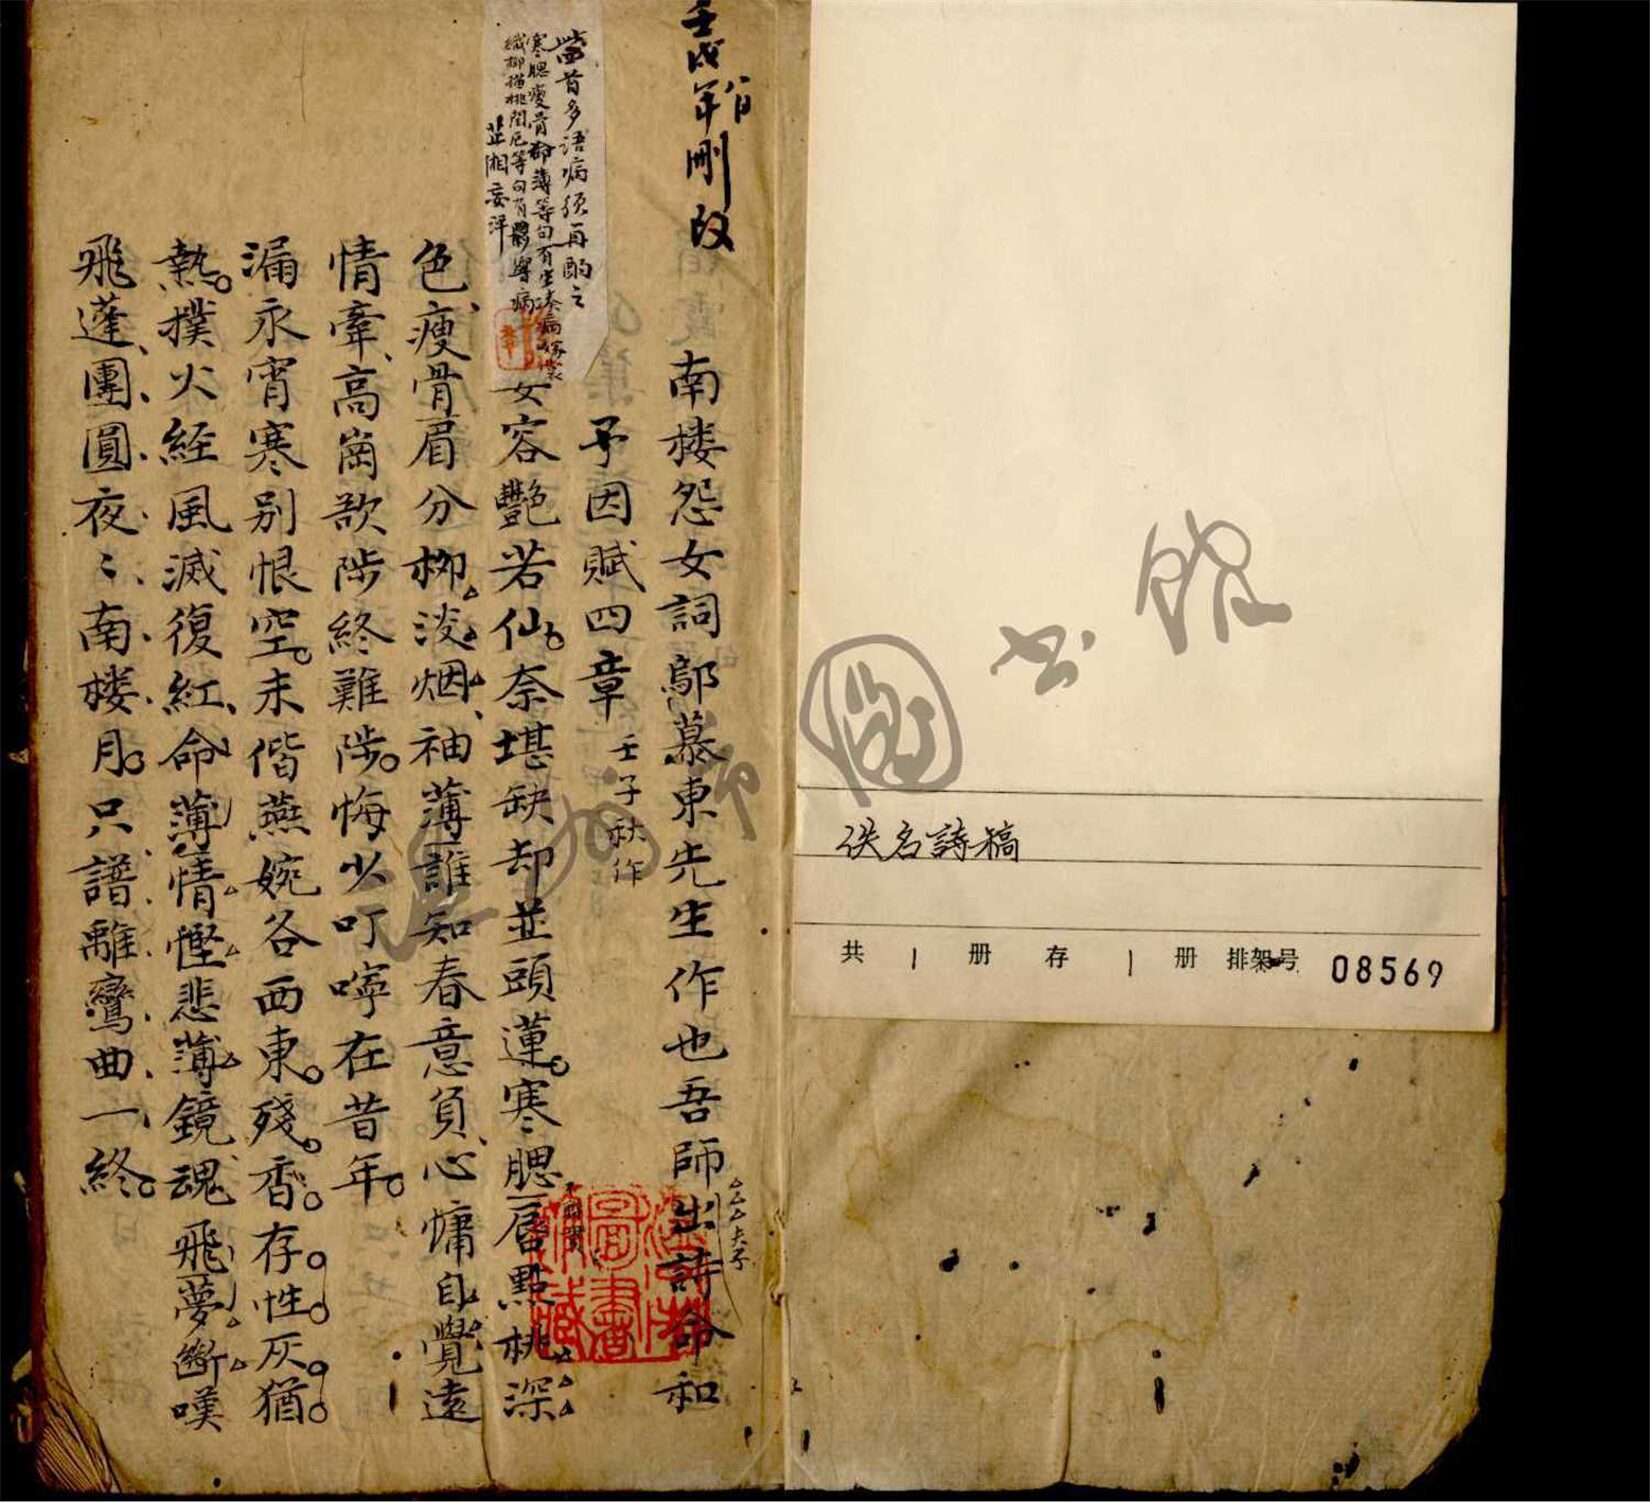 佚名詩稿
共 1 册 存 1 册 排架号 08569
壬戌年八月刪改
南楼怨女詞鄔慕東先生作也吾師出詩命和
夫子
予因賦四章 壬子秋作
當首多語病須再酌之
寒腮瘦骨命薄等句有生湊病嫁裳
織柳描桃閨怨等句有鬍學病
芷湘妄評
女容艷若仙奈堪缺却並頭蓮寒腮唇點桃深
色瘦骨眉分柳淡烟袖薄誰知春意負心慵自覺遠
情牽高崗欲陟終難陟悔少叮嚀在昔年
漏永宵寒别恨空未偕燕婉各西東殘香存性灰猶
熱撲火経風滅復紅命薄情慳悲薄鏡魂飛夢斷嘆
飛蓬團圓夜〻南楼月只譜離鸞曲一終